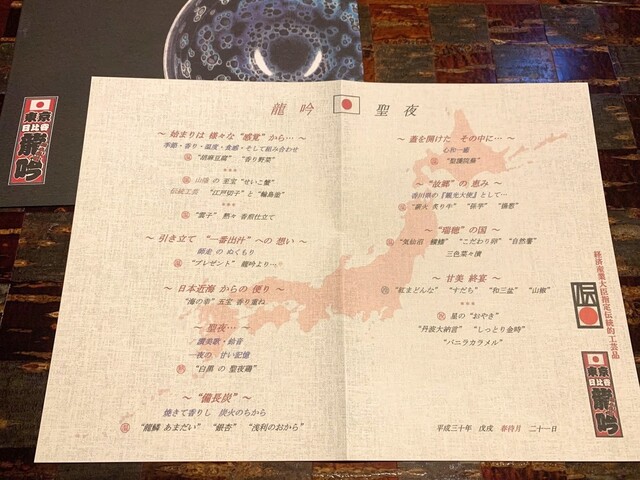 東京
日比谷
龍吟
龍吟 聖夜
~ 始まりは 様々な “感覚” から… ~
季節・香り・温度・食感・そして組み合わせ
“胡麻豆腐” “香り野菜”
***
山陰 の 至宝 “せいこ蟹”
伝統工芸 “江戸切子” と “輪島塗”
***
“雲子” 熱々 香煎仕立て
~ 引き立て “一番出汁” への 想い ~
師走 の ぬくもり
“プレゼント” 龍吟より…
~ 日本近海 からの 便り ~
“海の幸” 五宝 香り重ね
~ 聖夜… ~
讃美歌・鈴音
一夜の 甘い記憶
“白黒 の 聖夜鶏”
~ “備長炭” ~
焼きて香りし 炭火のちから
“龍鱗 あまだい” “銀杏” “浅利のおから”
~ 蓋を開けた その中に… ~
心和一椀
~ “故郷” の 恵み ~
香川県の『観光大使』として…
“藁火 炙り牛”
~ “瑞穂” の国 ~
“こだわり卵” “自然薯”
三色菜々漬
~ 甘美 終宴 ~
“紅まどんな” “すだち” “和三盆” “山椒”
***
星の “おやき”
“丹波大納言” “しっとり金時”
“バニラカラメル”
平成三十年 戊戌 春待月 二十一日
経済産業大臣指定伝統的工芸品
東京
日比谷
龍吟